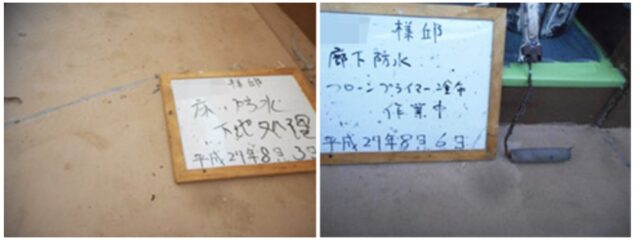 様邸
床 防水
下地処理
平成27年8月3日
様邸
廊下防水
フローンプライマー塗布
作業中
平成27年8月6日